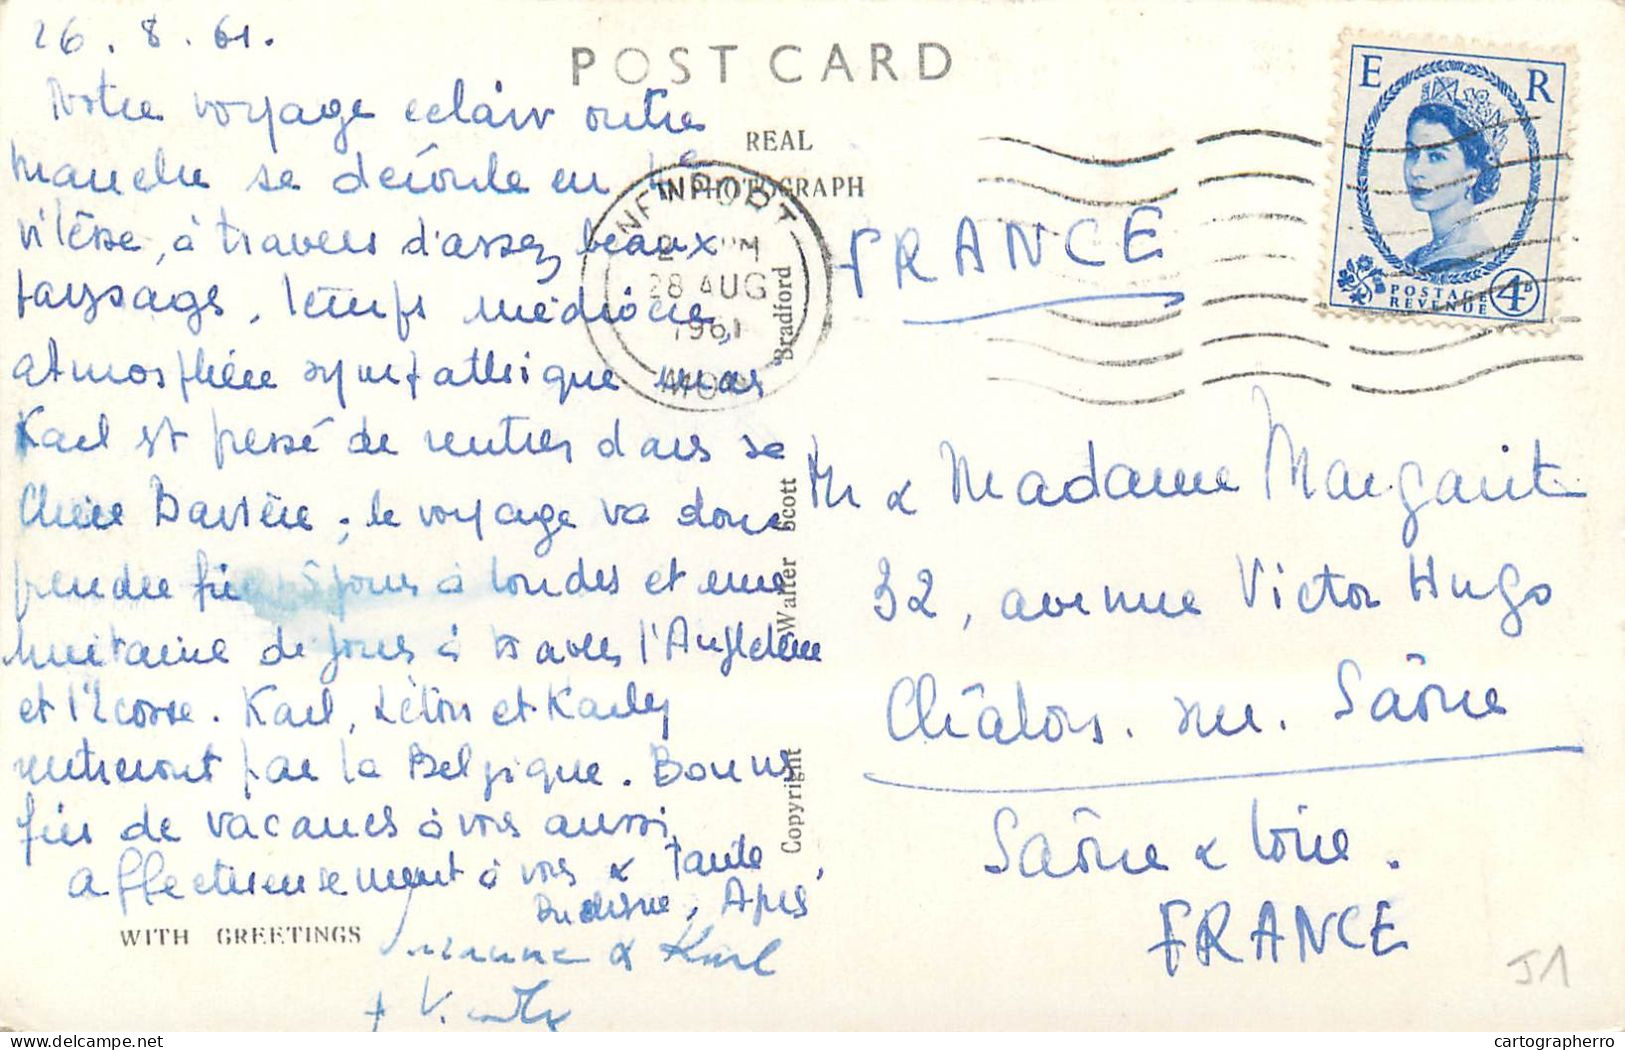 26.8.61.
POST CARD
Notre voyage eclair outre
Manche se déroule en 4e
vitesse, à travers d'assez beaux
paysages, temps médiocre,
atmosphère sympathique mais
Karl est pressé de rentrer dans sa
Chère Bavière; le voyage va donc
prendre fin 5 jours à Londres et une
huitaine de jours à travers l'Angleterre
et l'Ecosse. Karl, et
rentreront par la Belgique. Bonne
fin de vacances à vous aussi
affectueusement à vous & Tante
&  Karl
WITH GREETINGS
REAL
PHOTOGRAPH
Copyright Walter Scott Bradford
NEWPORT
PM
28 AUG
1961
MON
E R
POSTAGE
REVENUE
4D
FRANCE
Mr & Madame Margarit
32, avenue Victor Hugo
Châlons. sur. Saône
Saône & Loire.
FRANCE
J1
© www.delcampe.net
cartographerro